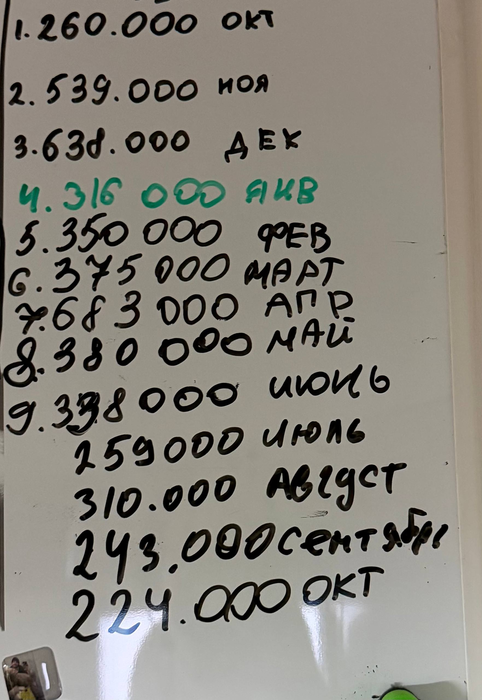 1.260.000 ОКТ
2.539.000 НОЯ
3.638.000 ДЕК
4.316 000 ЯНВ
5.350 000 ФЕВ
6.375 000 МАРТ
7.683 000 АПР
8.380 000 МАЙ
9.338000 ИЮНЬ
259000 ИЮЛЬ
310.000 АВГУСТ
243.000 сентябрь
224.000 ОКТ